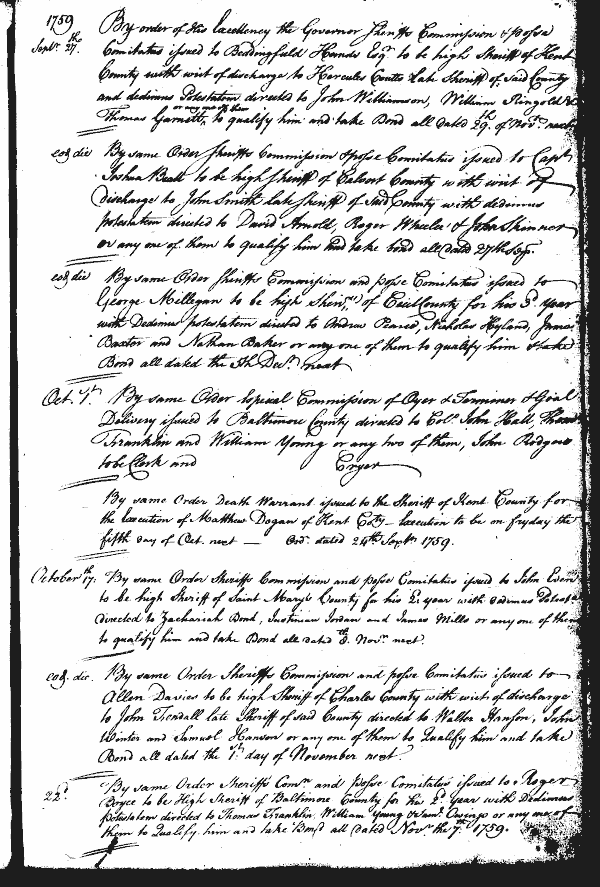 1759
Sept.r 27.th
By order of His Excellency the Governor Sheriffs Commission & posse
Comitatus issued to Beddingfield Hands Esq.r to be high Sheriff of Kent
County with writ of discharge to Hercules Coutts Late Sheriff of said County
and dedimus Potestatem directed to John Williamson, William Ringold &
or any one of them
Thomas Garnett, to qualify him and take Bond all dated 29.th of Nov.r next
eod. die By same Order Sheriffs Commission & posse Comitatus issued to Cap.t
Joshua Beall to be high Sheriff of Calvert County with writ of
Discharge to John Smith Late Sheriff of said County with dedimus
potestatem directed to David Arnold, Roger Wheeler & John Skinner
or any one of them to qualify him and take bond all dated 27th Sep.
eod. die By same Order Sheriffs Commission and posse Comitatus issued to
George Millegan to be high Sheriff of Cecil County for his 3.d Year
with Dedimus potestatem directed to Andrew Pearce, Nicholas Hyland, James
Baxter and Nathan Baker or any one of them to qualify him & take
Bond all dated the 5th Dec.r next
Oct. 1.st By same Order Special Commission of Oyer & Terminer & Goal
Delivery issued to Baltimore County directed to Col.o John Hall, Thomas
Franklin and William Young or any two of them, John Rodgers
to be Clerk and Cryer
By same Order Death Warrant issued to the Sheriff of Kent County for
the Execution of Matthew Dogan of Kent Co.ty - execution to be on fryday the
fifth day of Oct. next — Ord. dated 24th Sept.r 1759.
October 17.th By same Order Sheriffs Commission and posse Comitatus issued to John
to be high Sheriff of Saint Mary's County for his 2.d year with dedimus
directed to Zachariah Bond, Justinian Jordan and James Mills or any one of them
to qualify him and take Bond all dated 8.th Nov.r next.
eod. die. By same Order Sheriffs Commission and posse Comitatus issued to
Allen Davies to be high Sheriff of Charles County with writ of discharge
to John Tendall late Sheriff of said County directed to Walter Hanson, John
Winter and Samuel Hanson or any one of them to Qualify him and take
Bond all dated the 1.st day of November next.
22.d By same Order Sheriffs Com.n and posse Comitatus issued to Roger
Boyce to be High Sheriff of Baltimore County for his 2.d Year with Dedimus
potestatem directed to Thomas Franklin, William Young & Sam.l Owings or any one of
them to Qualify him and take Bond all dated Nov.r the 7.th 1759.